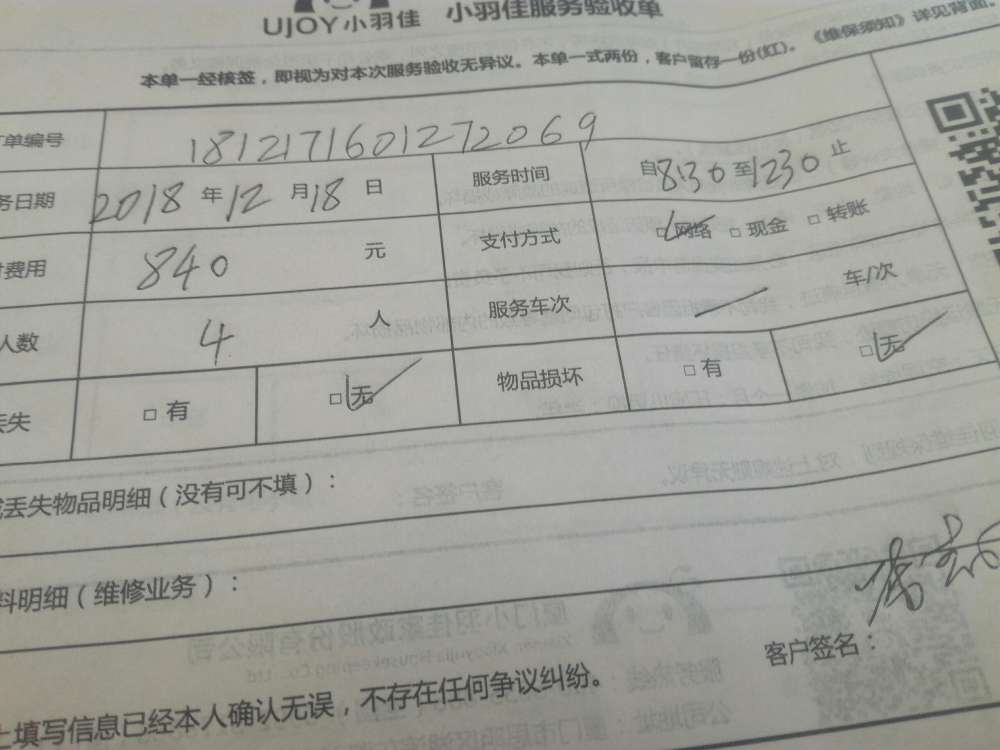 UJOY小羽佳 小羽佳服务验收单
本单一经核签，即视为对本次服务验收无异议。本单一式两份，客户留存一份(红)。《维保须知》详见背面。
单编号 181217160127 2069
务日期 2018 年 12 月 18 日 服务时间 自 8:30 至 1230 止
费用 840 元 支付方式 □网络 □现金 □转账
人数 4 人 服务车次 车/次
丢失 □有 □无 物品损坏 □有 □无
丢失物品明细（没有可不填）：
料明细（维修业务）：
客户签名：
上填写信息已经本人确认无误，不存在任何争议纠纷。